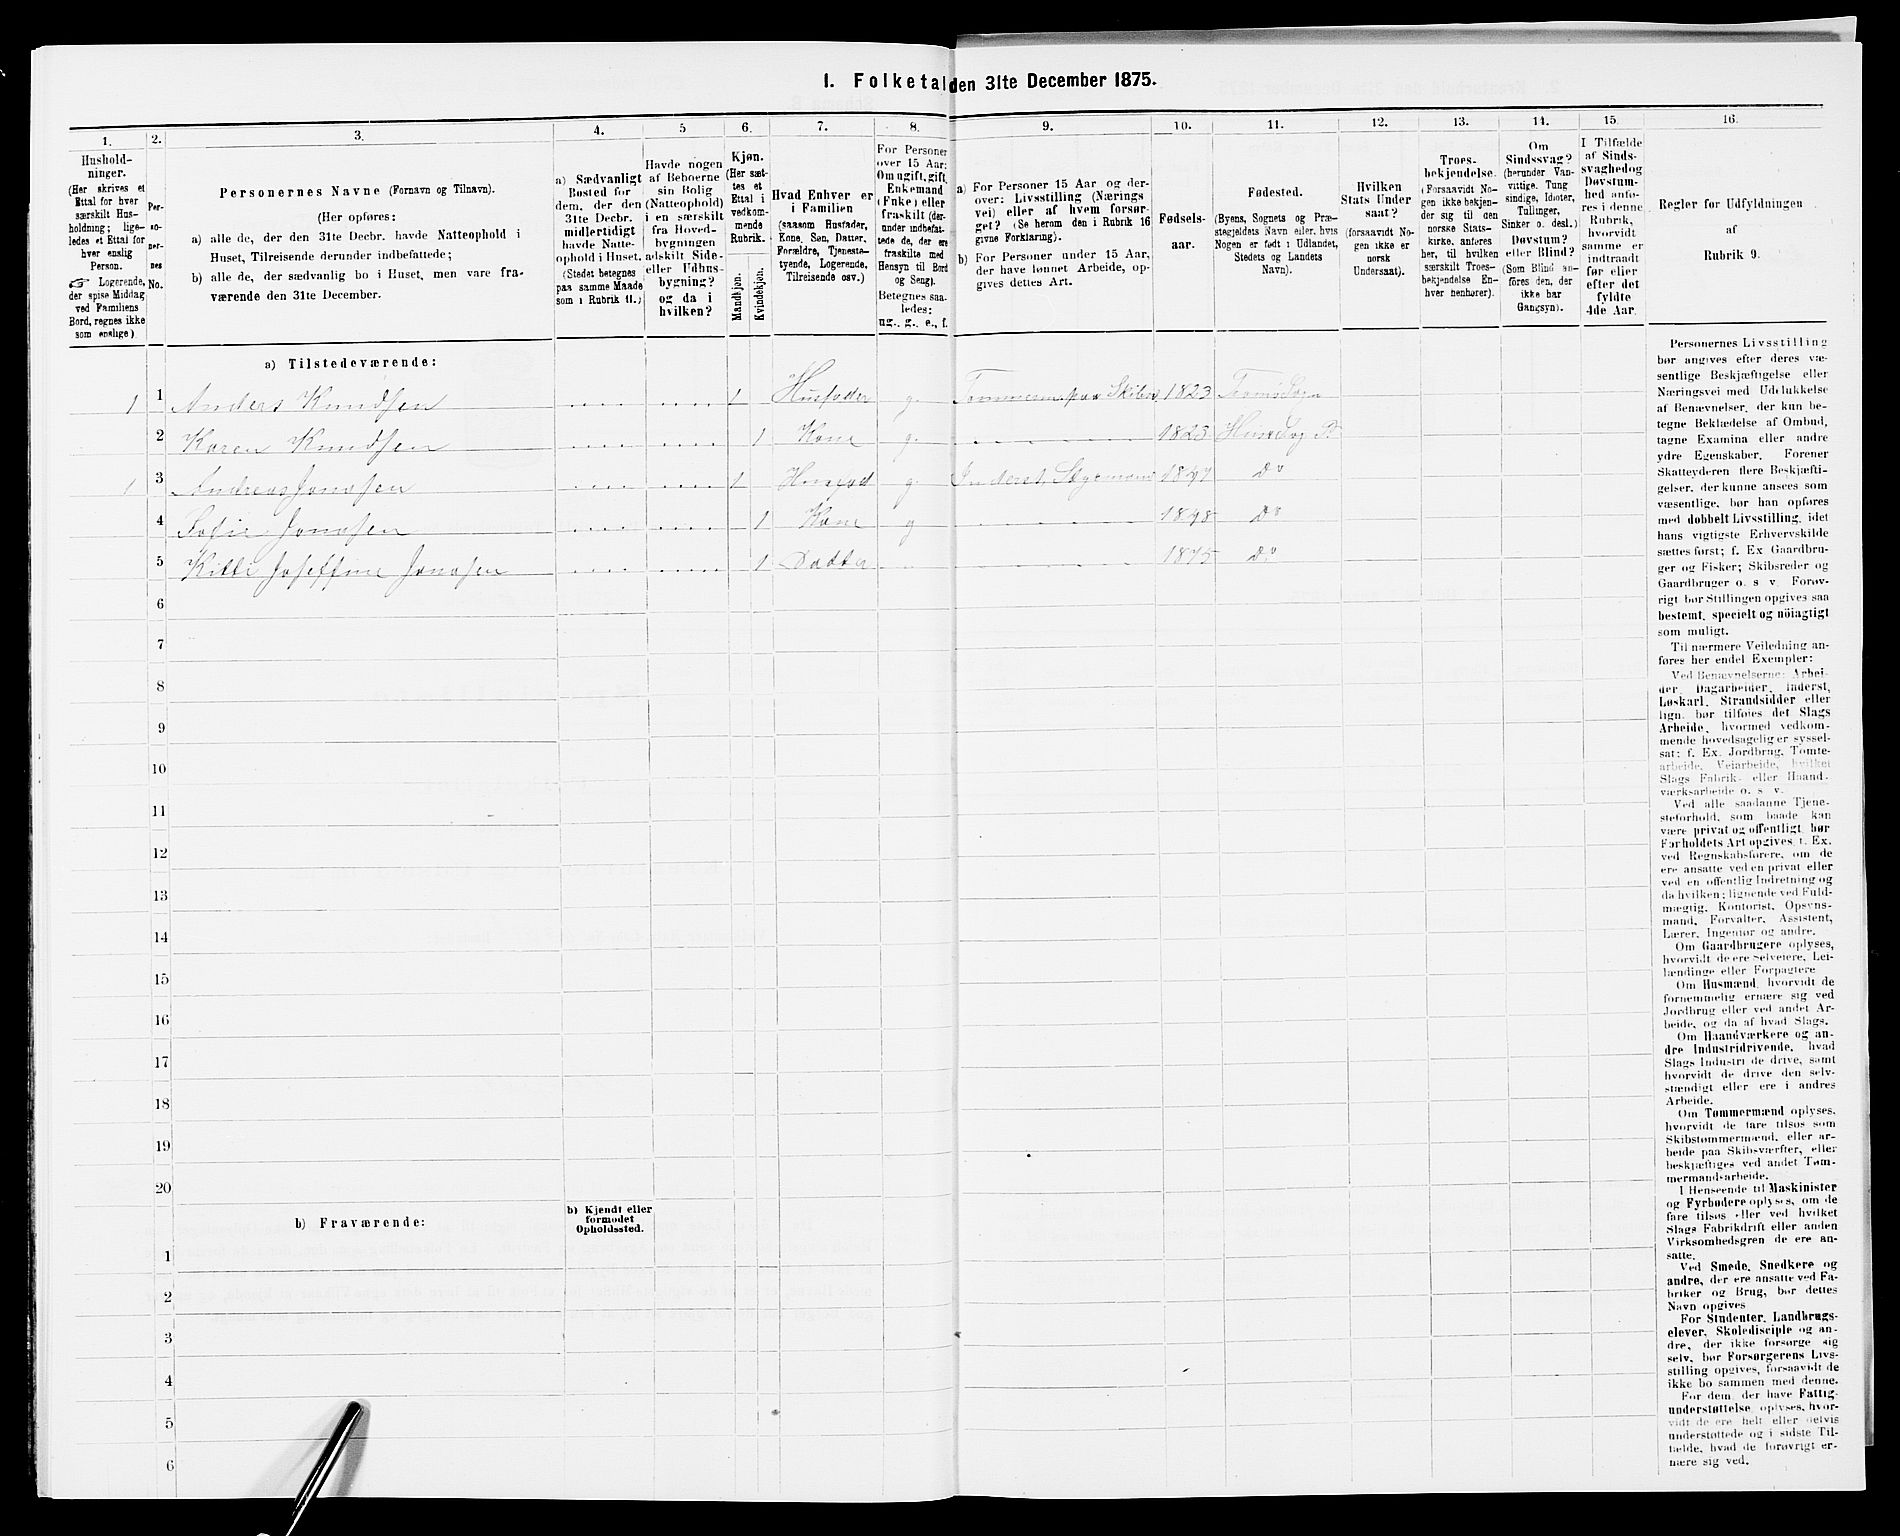 I. Folketal den 31te December 1875.
1. 2. 3. 4. 5 6. 7. 8. 9. 10. 11. 12. 13. 14. 15. 16.
Hushold-
ninger.
(Her skrives et
Ettal for hver
særskilt Hus-
holdning; lige-
ledes et Ettal for
hver enslig
Person.
☞ Logerende,
der spise Middag
ved Familiens
Bord, regnes ikke
som enslige)
Per-
so-
ner-
nes
No.
Personernes Navne (Fornavn og Tilnavn).
(Her opføres:
a) alle de, der den 31te Decbr. havde Natteophold i
Huset, Tilreisende derunder indbefattede;
b) alle de, der sædvanlig bo i Huset, men vare fra-
værende den 31te December.
a) Sædvanligt
Bosted for
dem, der den
31te Decbr.
midlertidigt
havde Natte-
ophold i Huset.
(Stedet betegnes
paa samme Maade
som i Rubrik 11.)
Havde nogen
af Beboerne
sin Bolig
(Natteophold)
i en særskilt
fra Hoved-
bygningen
adskilt Side-
eller Udhus-
bygning?
og da i
hvilken?
Kjøn.
(Her sæt-
tes et
Ettal i
vedkom-
mende
Rubrik.
Mandkjøn.
Kvindekjøn.
Hvad Enhver er
i Familien
(saasom Husfader,
Kone, Søn, Datter,
Forældre, Tjeneste-
tyende, Logerende,
Tilreisende osv.)
For Personer
over 15 Aar:
Om ugift, gift,
Enkemand
(Enke) eller
fraskilt (der-
under indbefat-
tede de, der ere
fraskilte med
Hensyn til Bord
og Seng).
Betegnes saa-
ledes:
ug., g., e., f.
a) For Personer 15 Aar og der-
over: Livsstilling (Nærings
vei) eller af hvem forsør-
get? (Se herom den i Rubrik 16
givne Forklaring).
b) For Personer under 15 Aar,
der have lønnet Arbeide, op-
gives dettes Art.
Fødsels-
aar.
Fødested.
(Byens, Sognets og Præ-
stegjeldets Navn eller, hvis
Nogen er født i Udlandet,
Stedets og Landets
Navn).
Hvilken
Stats Under
saat?
(forsaavidt No-
gen ikke er
norsk
Undersaat).
Troes-
bekjendelse.
(Forsaavidt No-
gen ikke bekjen-
der sig til den
norske Stats-
kirke, anføres
her, til hvilken
særskilt Troes-
bekjendelse En-
hver henhører).
Om
Sindssvag?
(herunder Van-
vittige, Tung
sindige, Idioter,
Tullinger,
Sinker o. desl.)
Døvstum?
eller Blind?
(Som Blind an-
føres den, der
ikke har
Gangsyn).
I Tilfælde
af Sinds-
svaghed og
Døvstum-
hed anfø-
res i denne
Rubrik,
hvorvidt
samme er
indtraadt
før eller
efter det
fyldte
4de Aar.
Regler for Udfyldningen
af
Rubrik 9.
a) Tilstedeværende:
1 1 Anders Knudsen 1 Husfader g. 1823
2 Karen Knudsen 1 Kone g. 1823
1 3 Andreas Jonasen 1 g. 1847 Do
4 Sofie Jonasen 1 Kone g 1848 Do
5 Kitti Joseffine Jonasen 1 Datter 1875 Do
6
7
8
9
10
11
12
13
14
15
16
17
18
19
20
b) Fraværende:
b) Kjendt eller
formodet
Opholdssted.
1
2
3
4
5
6
Personernes Livsstilling
bør angives efter deres væ-
sentlige Beskjæftigelse eller
Næringsvei med Udelukkelse
af Benævnelser, der kun be-
tegne Beklædelse af Ombud,
tagne Examina eller andre
ydre Egenskaber. Forener
Skatteyderen flere Beskjæfti-
gelser, der kunne ansees som
væsentlige, bør han opføres
med dobbelt Livsstilling, idet
hans vigtigste Erhvervskilde
sættes først; f. Ex Gaardbru-
ger og Fisker; Skibsreder og
Gaardbruger o. s v. Forøv-
rigt bør Stillingen opgives saa
bestemt, specielt og nöiagtigt
som muligt.
Til nærmere Veiledning an-
føres her endel Exempler:
Ved Benævnelserne: Arbei-
der, Dagarbeider, Inderst,
Løskarl, Strandsidder eller
lign. bør tilføies det Slags
Arbeide, hvormed vedkom-
mende hovedsagelig er syssel-
sat; f. Ex. Jordbrug, Tomte-
arbeide, Veiarbeide, hvilket
Slags Fabrik- eller Haand-
værksarbeide o. s v.
Ved alle saadanne Tjene-
steforhold, som baade kan
være privat og offentligt, bør
Forholdets Art opgives, f. Ex.
ved Regnskabsførere, om de
ere ansatte ved en privat eller
ved en offentlig Indretning og
da hvilken; lignende ved Fuld-
mægtig, Kontorist, Opsyns-
mand, Forvalter, Assistent,
Lærer, Ingeniør og andre.
Om Gaardbrugere oplyses,
hvorvidt de ere Selveiere, Lei-
lændinge eller Forpagtere
Om Husmænd, hvorvidt de
fornemmelig ernære sig ved
Jordbrug eller ved andet Ar-
beide, og da af hvad Slags.
Om Haandværkere og an-
dre Industridrivende, hvad
Slags Industri de drive, samt
hvorvidt de drive den selv-
stændigt eller ere i andres
Arbeide.
Om Tømmermænd oplyses,
hvorvidt de fare tilsøs som
Skibstømmermænd, eller ar-
beide paa Skibsværfter, eller
beskjæftiges ved andet Tøm-
mermandsarbeide.
I Henseende til Maskinister
og Fyrbødere oplyses, om de
fare tilsøs eller ved hvilket
Slags Fabrikdrift eller anden
Virksomhedsgren de ere an-
satte.
Ved Smede, Snedkere og
andre, der ere ansatte ved Fa-
briker og Brug, bør dettes
Navn opgives
For Studenter, Landbrugs-
elever, Skoledisciple og an-
dre, der ikke forsørge sig
selv, bør Forsørgerens Livs-
stilling opgives, forsaavidt de
ikke bo sammen med denne.
For dem, der have Fattig-
understøttelse, oplyses, hvor-
vidt de ere helt eller delvis
understøttede og i sidste Til-
fælde, hvad de forøvrigt er-
nære sig ved.